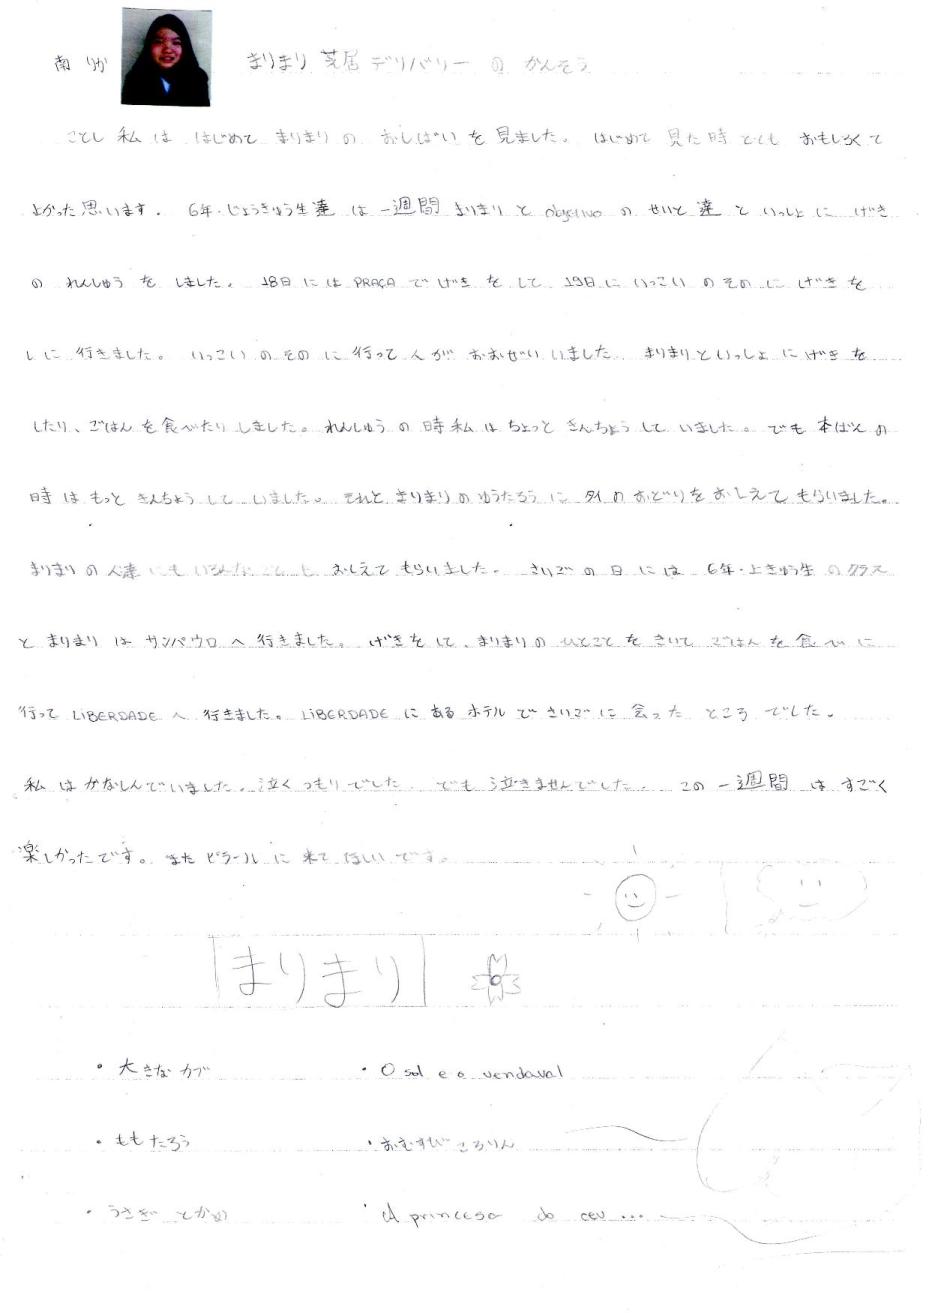 南 りか まりまり 芝居 デリバリー の かんそう
ことし 私 は はじめて まりまり の おしばい を 見ました。 はじめて 見た 時 とても おもしろくて
よかった 思います. 6年・じょうきゅう生達 は 一週間 まりまり と objetivo の せいと 達 と いっしょ に げき
の れんしゅう を しました。 18日 に は PRAÇA で げき を して 19日 に いっこい の その に げき を
し に 行きました。 いっこい の その に 行って 人 が おおぜい いました. まりまり と いっしょ に げき を
したり、ごはん を 食べたり しました。れんしゅう の 時 私 は ちょっと きんちょう して いました。 でも 本ばん の
時 は もっと きんちょう して いました。 それと まりまり の ゆうたろう に タイ の おどり を おしえて もらいました。
まりまり の 人達 にも いろんな こと も おしえて もらいました。 さいご の 日 に は 6年・上きゅう生 の クラス
と まりまり は サンパウロ へ 行きました。 げき を して、まりまり の ひとこと を きいて ごはん を 食べ に
行って LIBERDADE へ 行きました。LIBERDADE に ある ホテル で さいご に 会った ところ でした。
私 は かなしんで いました. 泣く つもり でした. でも 泣きませんでした. この 一週間 は すごく
楽しかった です。 また ピラール に 来て ほしい です。
まりまり
・大きな カブ ・O sol e o vendaval
・ももたろう ・おむすび ころりん
・うさぎ と かめ ・A princesa do ceu ...